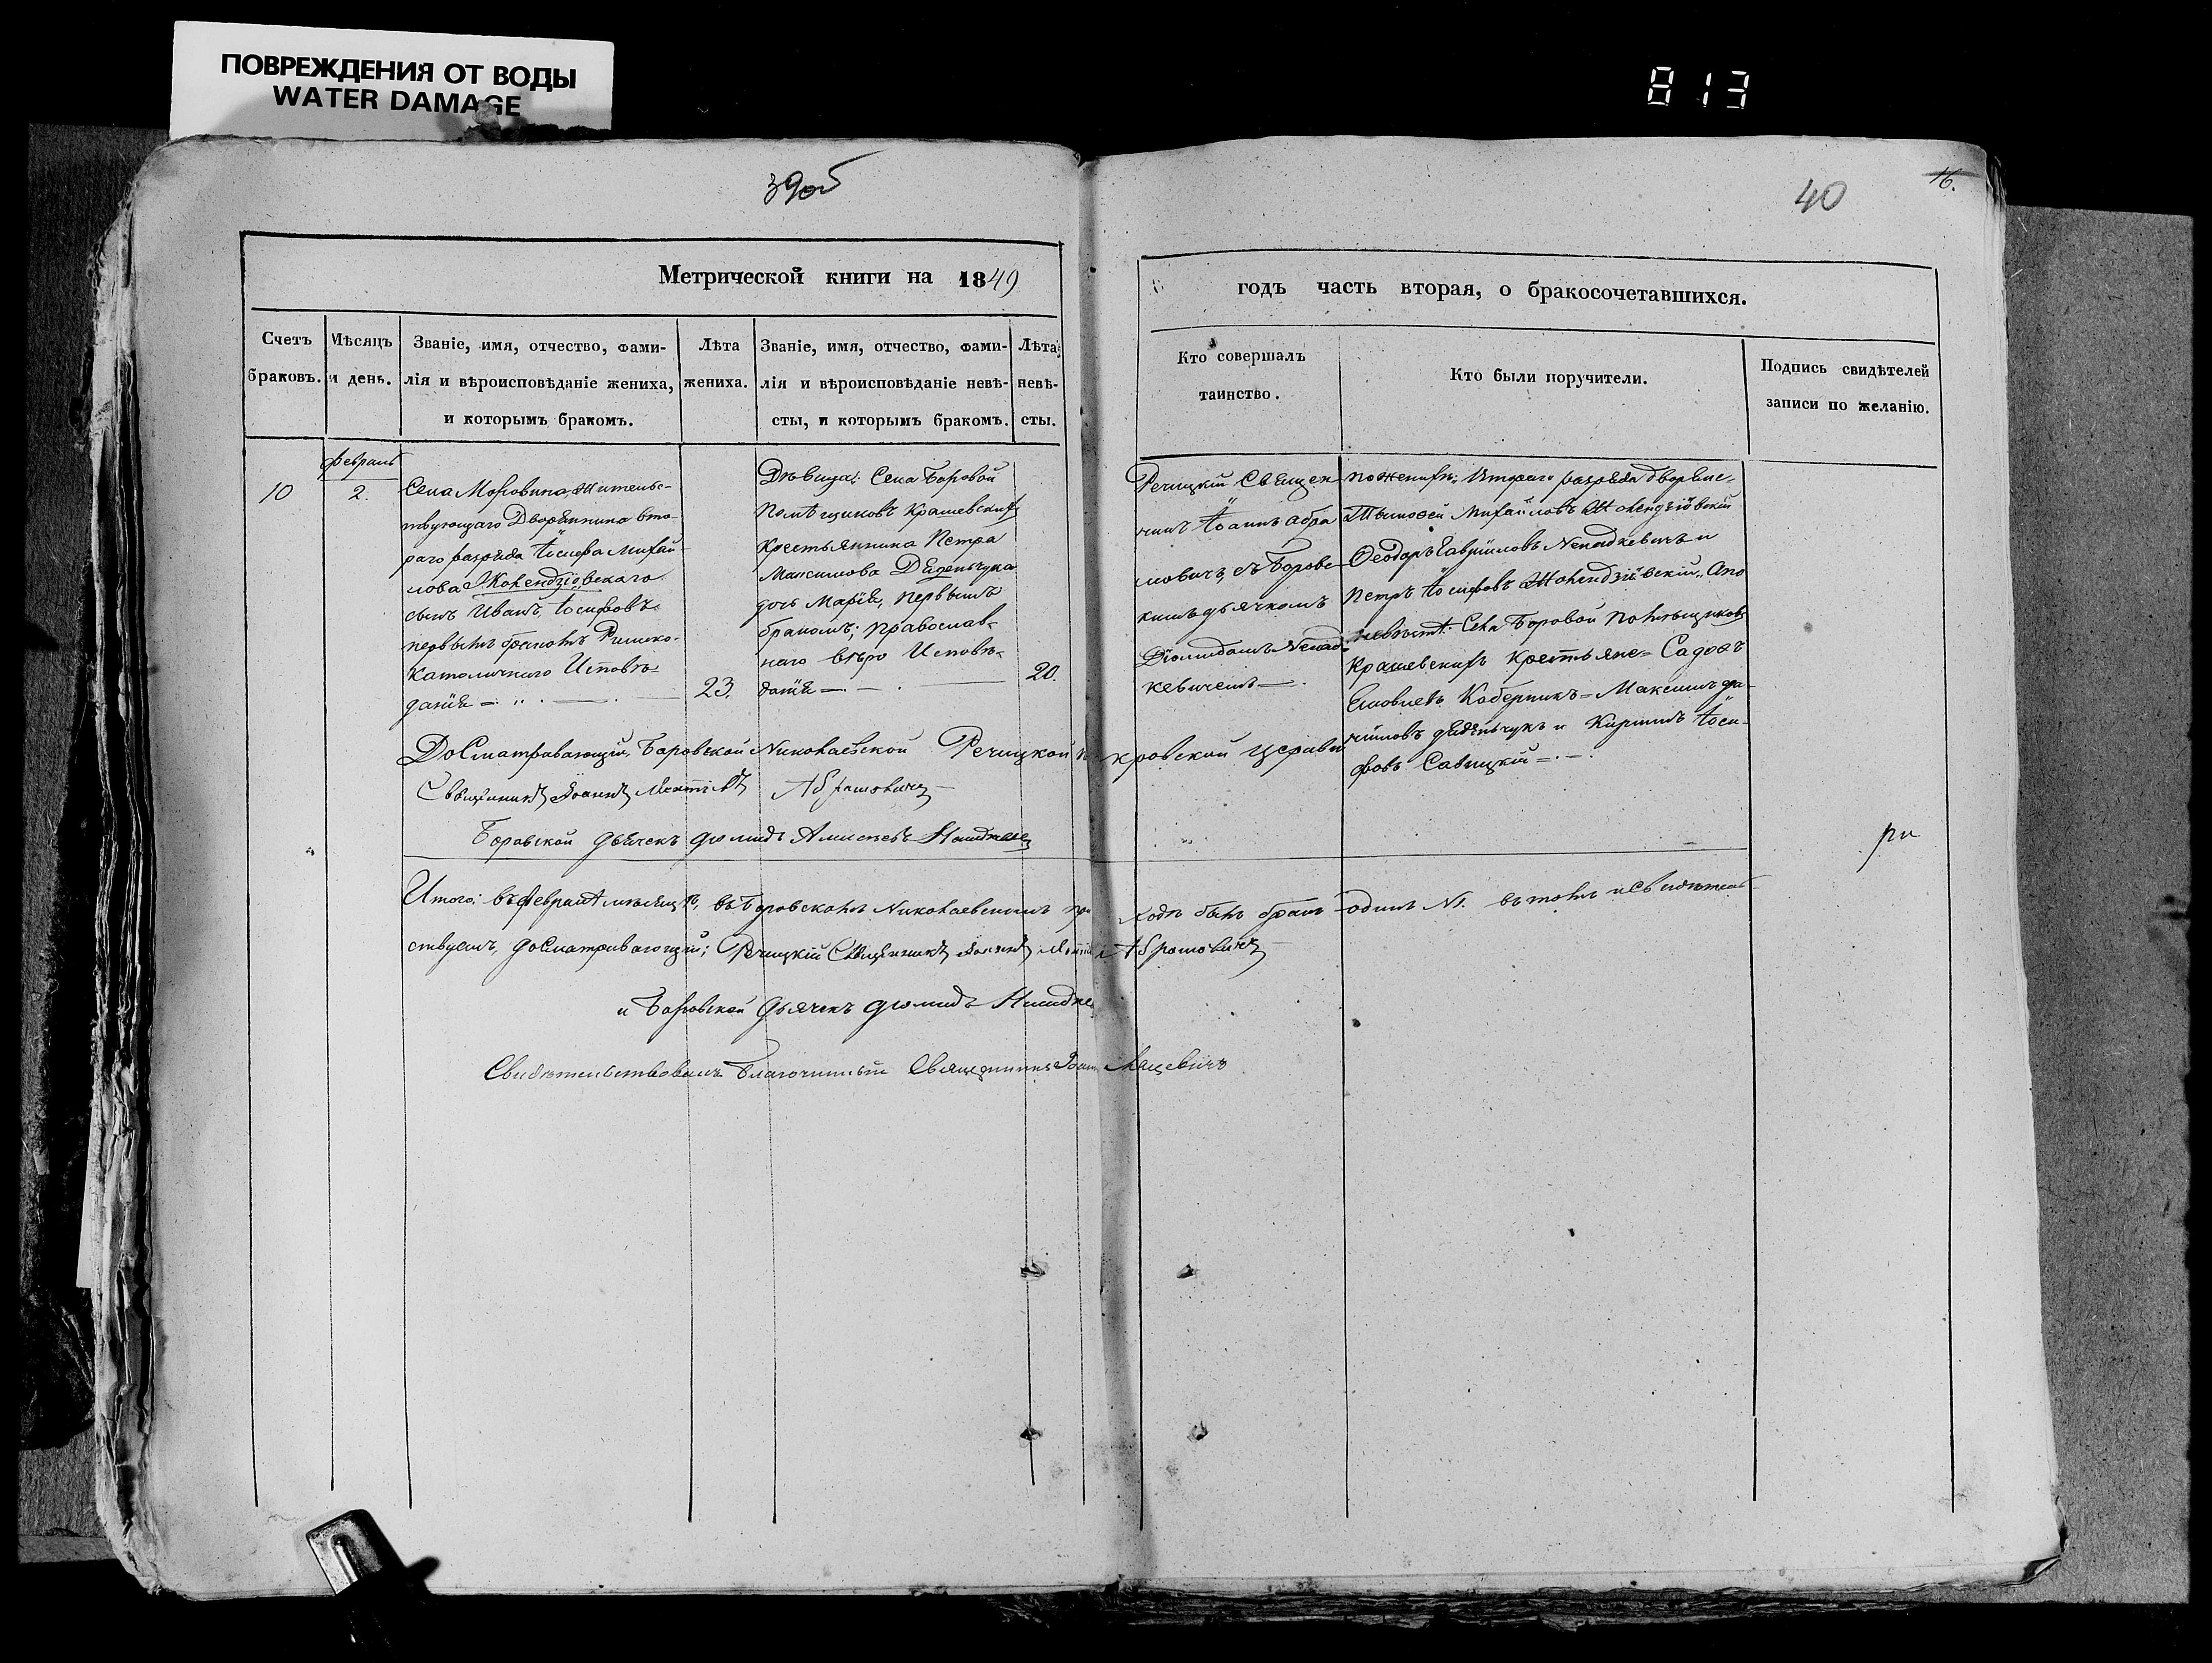 ПОВРЕЖДЕНИЯ ОТ ВОДЫ
WATER DAMAGE
813
39об
40
16.
Метрической книги на 1849
годъ часть вторая, о бракосочетавшихся.
Счетъ браковъ.
Мѣсяцъ и день.
Званіе, имя, отчество, фами-
лія и вѣроисповѣданіе жениха,
и которымъ бракомъ.
Лѣта жениха.
Званіе, имя, отчество, фами-
лія и вѣроисповѣданіе невѣ-
сты, и которымъ бракомъ.
Лѣта невѣ-
сты.
Кто совершалъ
таинство.
Кто были поручители.
Подпись свидѣтелей
записи по желанію.
10
февраль
2.
Села Моровина, жительс-
твующаго Дворянина вто-
раго разряда Іосифа Михай-
лова
сынъ Иванъ Іосифовъ
первымъ бракомъ Римско-
католичкаго Исповѣ-
данія
23.
Дѣвица: Села Боровой
Помѣщиковъ Крашевскихъ
крестьянина Петра
Максимова
дочь Марія, первымъ
бракомъ; православ-
наго вѣро Исповѣ-
данія
20.
Речицкій Священ
никъ Іоаннъ Абра
мовичъ, съ Боровс
кимъ дьячкомъ
Діомидомъ Ненад-
кевичемъ
по женихѣ; Втораго разряда дворяне,
Тимофей Михайловъ
Феодоръ Гавриловъ Ненадкевичъ и
Петръ Іосифовъ "А по
невѣстѣ: Села Боровой Помѣщиковъ
Крашевскихъ крестьяне = Садокъ
Коберникъ = Максимъ
и Кириллъ Іоси-
фовъ Савицкій
Досматривающій, Боровской Николаевской Речицкой Покровской церкви
Священникъ Іоаннъ Абрамовичъ
Боровской дьячекъ Діомидъ
Итого: въ февралѣ мѣсяцѣ, въ Боровскомъ Николаевскомъ приходѣ былъ бракъ одинъ №1. въ томъ и свидѣтель-
ствуемъ, досматривающій; Речицкій Священникъ Іоаннъ Абрамовичъ
и Боровской Дьячекъ Діомидъ
Свидѣтельствовалъ Благочинный Священникъ